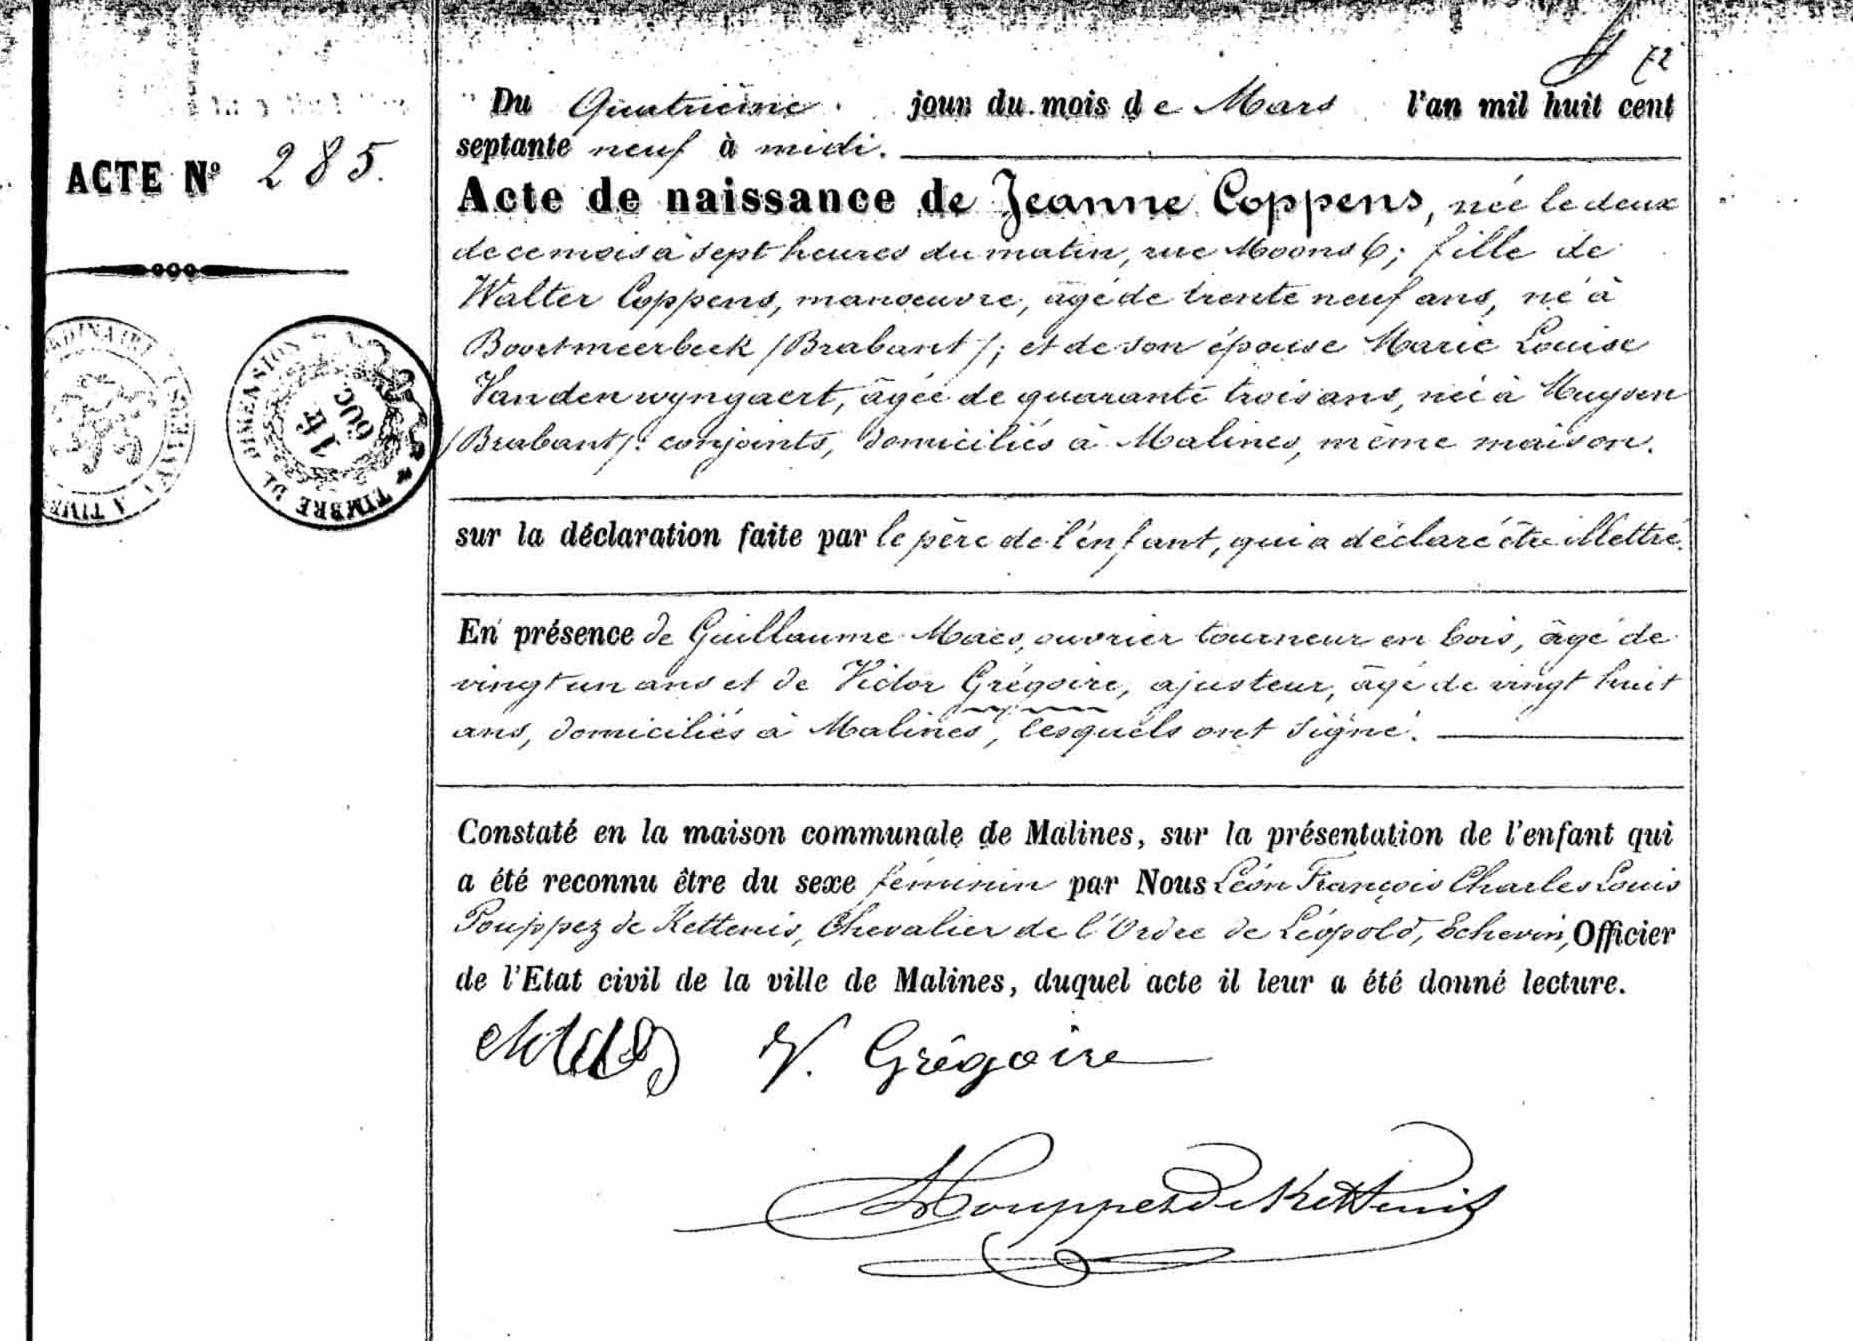 72
Du Quatrième jour du mois de Mars l'an mil huit cent
septante neuf à midi.
ACTE Nº 285.
Acte de naissance de Jeanne Coppens, née le deux
de ce mois à sept heures du matin, rue Moons 6; fille de
Walter Coppens, manoeuvre, âgé de trente neuf ans, né à
Boortmeerbeek (Brabant); et de son épouse Marie Louise
Vanden wyngaert, âgée de quarante trois ans, née à Muysen
(Brabant): conjoints, domiciliés à Malines, même maison.
TIMBRE DE DIMENSION
sur la déclaration faite par le père de l'enfant, qui a déclaré être illettré.
En présence de Guillaume Maes, ouvrier tourneur en bois, âgé de
vingt un ans et de Victor Grégoire, ajusteur, âgé de vingt huit
ans, domiciliés à Malines, lesquels ont signé.
Constaté en la maison communale de Malines, sur la présentation de l'enfant qui
a été reconnu être du sexe féminin par Nous Léon François Charles Louis
Pouppez de Kettenis, Chevalier de l'Ordre de Léopold, Echevin, Officier
de l'Etat civil de la ville de Malines, duquel acte il leur a été donné lecture.
V. Grégoire
Pouppez de Kettenis